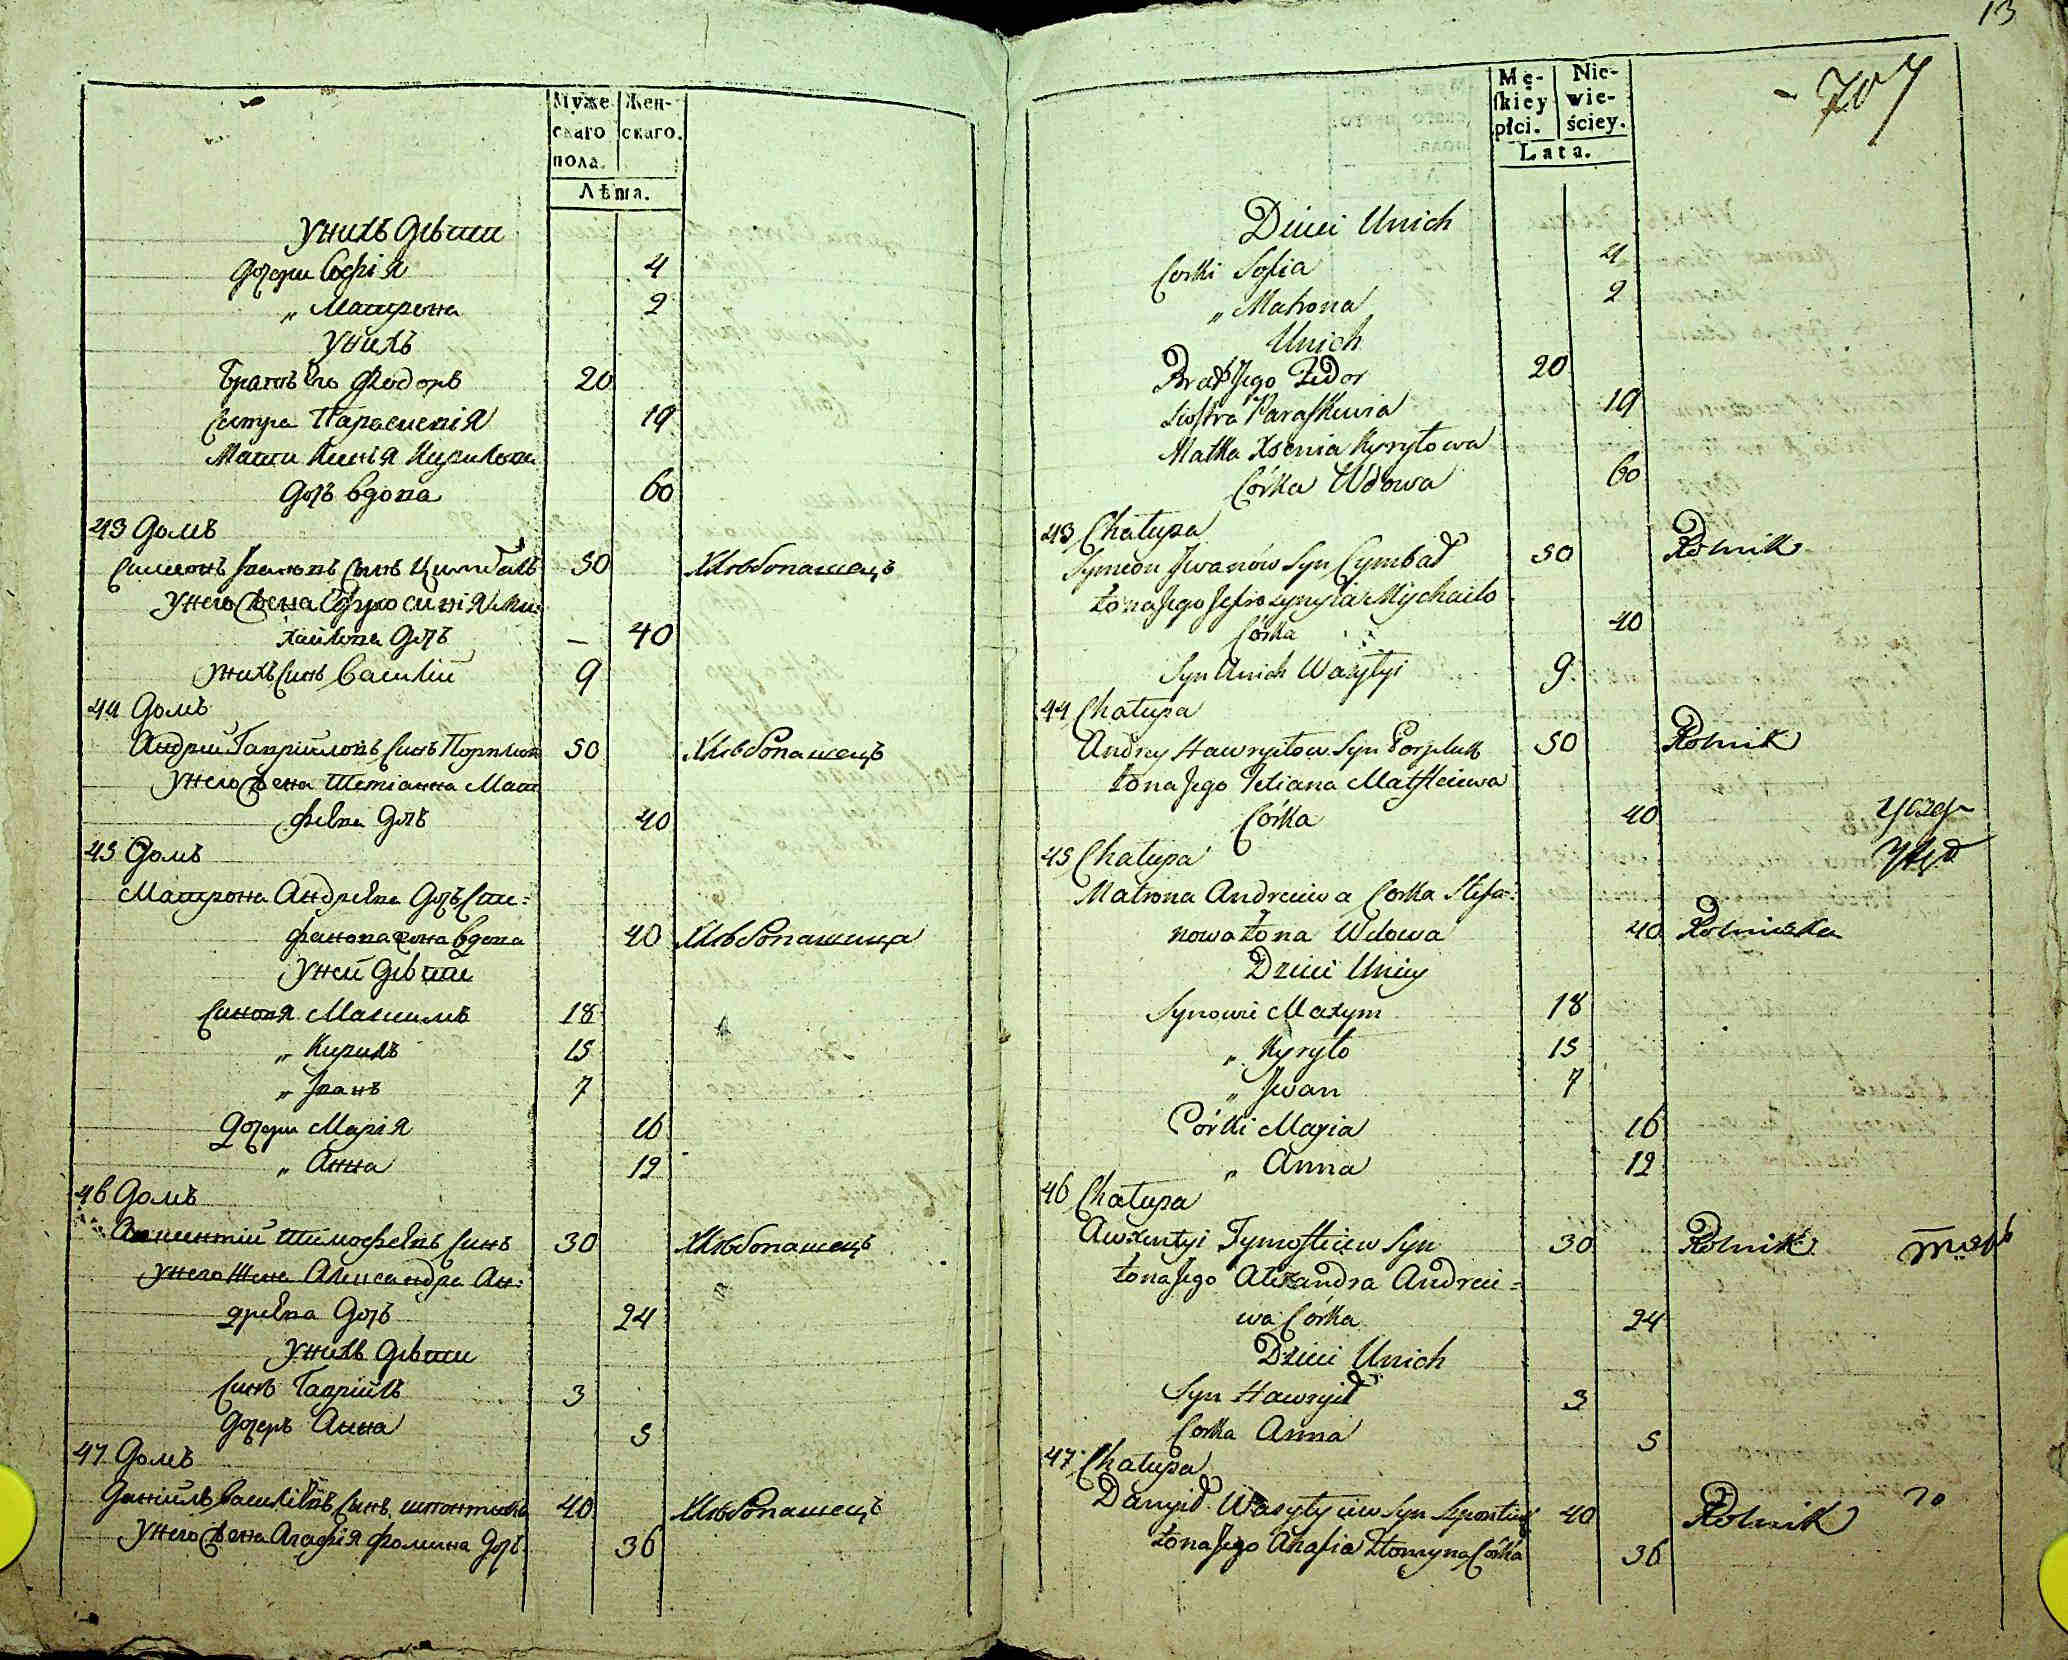 Муже
скаго
пола.
Жен-
скаго.
Лѣта.
Унихъ Дѣти
Дочери Софія 4
„ Матрона 2
Унихъ
Братъ Его Федоръ 20
Сестра Параскевія 19
Мати Ксенія Кирилова
Дочь вдова 60
43 Домъ
Симеонъ Ивановъ Сынъ Цимбалъ 50 Хлѣбопашецъ
Унего Жена Ефросинія Ми-
хайлова Дочь — 40
Унихъ Синъ Василій 9
44 Домъ
Андрій Гавриловъ Синъ 50 Хлѣбопашецъ
Унего Жена Тетіанна Мат
фѣева Дочь 40
45 Домъ
Матрона Андреева Дочь Сте=
фанова жена вдова 40 Хлѣбопашица
Уней Дѣти
Синовя Максимъ 18
„ Кирилъ 15
„ Иванъ 7
Дочери Марія 16
„ Анна 12
46 Домъ
Авксентій Тимофѣевъ Синъ 30 Хлѣбопашецъ
Унего Жена Александра Ан=
дреева Дочь 24
Унихъ Дѣти
Синъ Гавріилъ 3
Дочерь Анна 5
47 Домъ
Даніилъ Василіевъ Синъ 40 Хлѣбопашецъ
Унего Жена Агафія Фомина Дочь 36
13
707
Mę-
skiey
płci.
Nie-
wie-
ściey.
Lata.
Dzieci Unich
Corki Sofia 4
„ Matrona 2
Unich
Brat Jego Fedor 20
Siostra Paraskewia 19
Matka Xsenia Kyryłowa
Córka Wdowa 60
43 Chałupa
Symeon Jwanów Syn Cymbał 50 Rolnik
Żona Jego Jefrosynyia Mychaiło
Córka 40
Syn Unich Wasylyi 9
44 Chałupa
Andrey Hawryłow Syn 50 Rolnik
Żona Jego Tetiana Matfteiewa
Córka 40
45 Chałupa
Matrona Andreiewa Corka Stefa=
nowa Żona Wdowa 40 Rolniczka
Dzieci Uniey
Synowie Maxym 18
„ Kyryło 15
„ Jwan 7
Córki Maryia 16
„ Anna 12
46 Chałupa
Awxentyi Tymofteiew Syn 30 Rolnik
Żona Jego Alexandra Andreie=
wa Córka 24
Dzieci Unich
Syn Hawryił 3
Corka Anna 5
47 Chałupa
Danyił Wasylyiew Syn 40 Rolnik
Żona Jego Ahafia Chomyna Córka 36